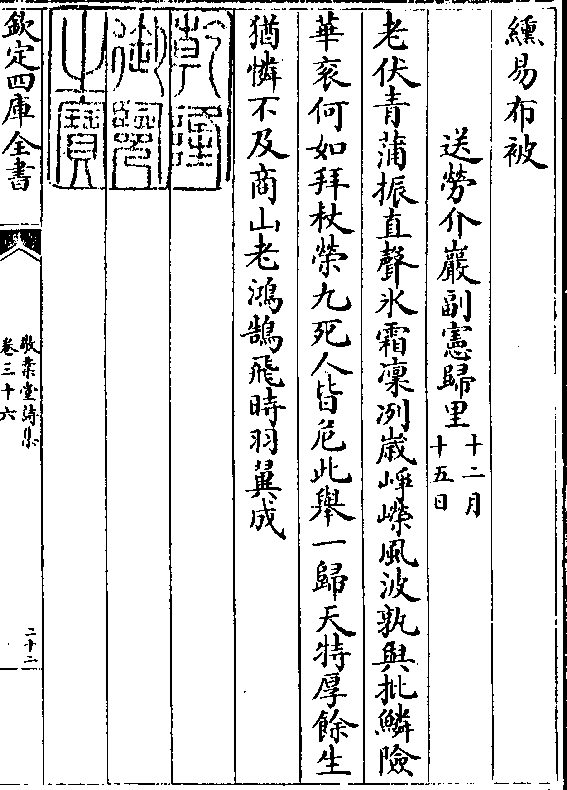 纁易布被
送勞介巖副憲歸里十二月十五日
老伏青蒲振直聲氷霜凜冽嵗崢嶸風波孰與批鱗險
華衮何如拜杖榮九死人皆危此舉一歸天特厚餘生
猶憐不及商山老鴻鵠飛時羽翼成
乾隆御覽之寶
欽定四庫全書
敬業堂詩集
卷三十六
二十二